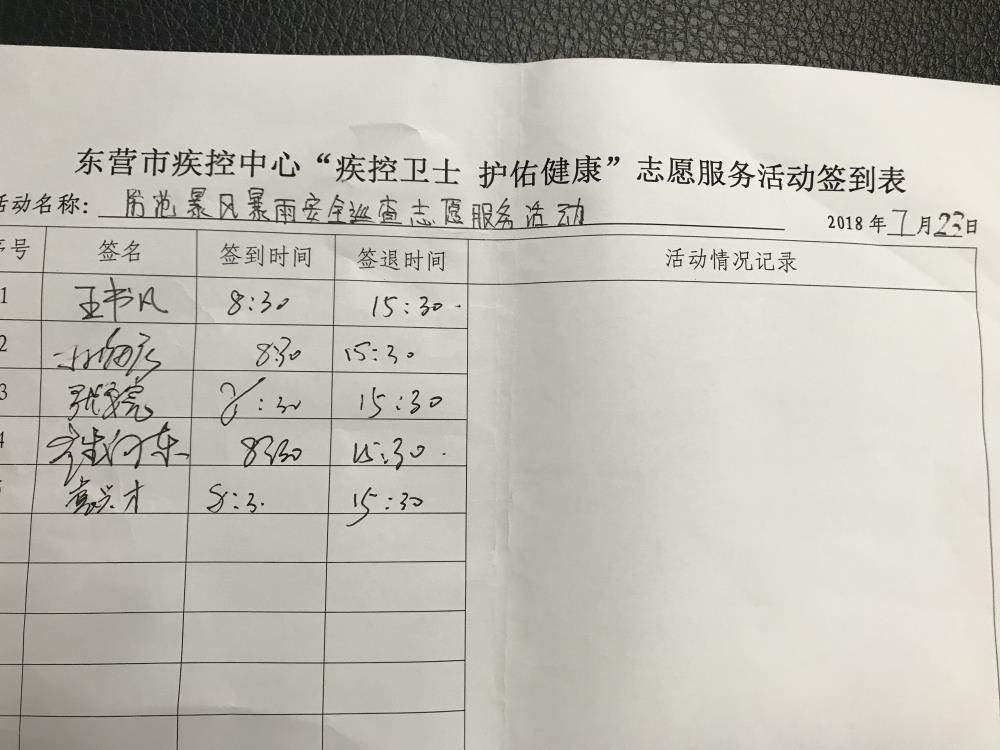 东营市疾控中心“疾控卫士 护佑健康”志愿服务活动签到表
活动名称: 防范暴风暴雨安全巡查志愿服务活动
2018年7月23日
序号 签名 签到时间 签退时间 活动情况记录
1 王书凡 8:30 15:30
2 8:30 15:30
3 8:30 15:30
4 8:30 15:30
5 袁兴才 8:3 15:30